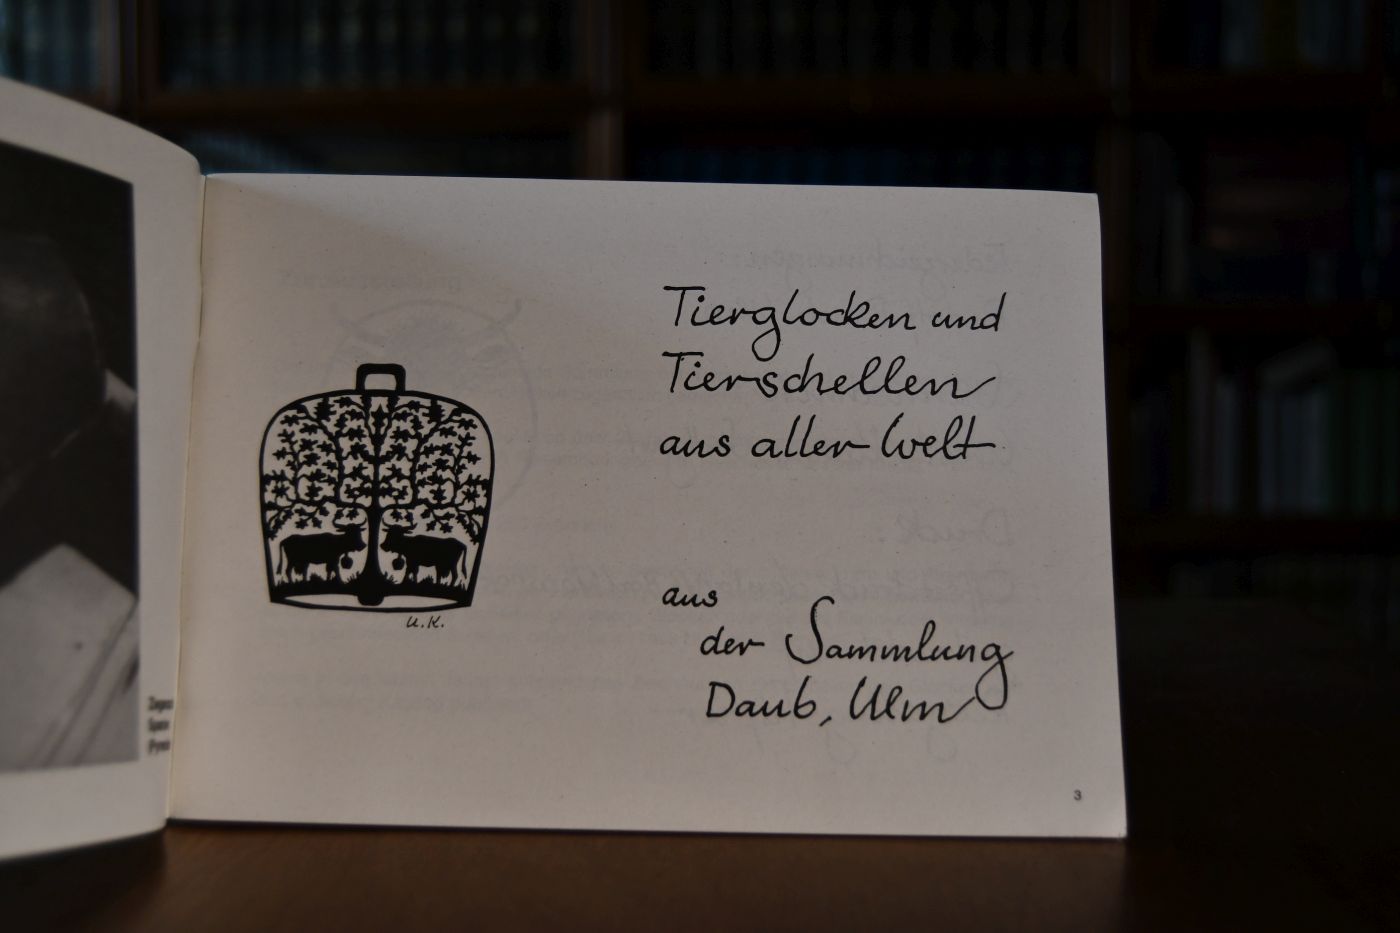 Tierglocken und
Tierschellen
aus aller Welt
aus
der Sammlung
Daub, Ulm
U.K.
3
Druck: